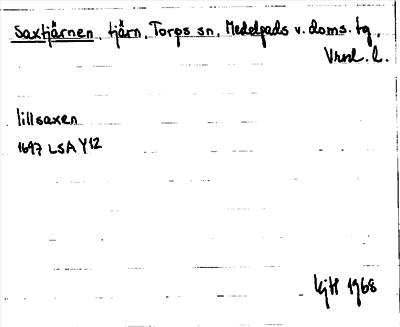 Saxtjärnen, tjärn, Torps sn, Medelpads v. doms. tg,
Vrnl. l.
lillsaxen
1697 LSA Y12
KjH 1968